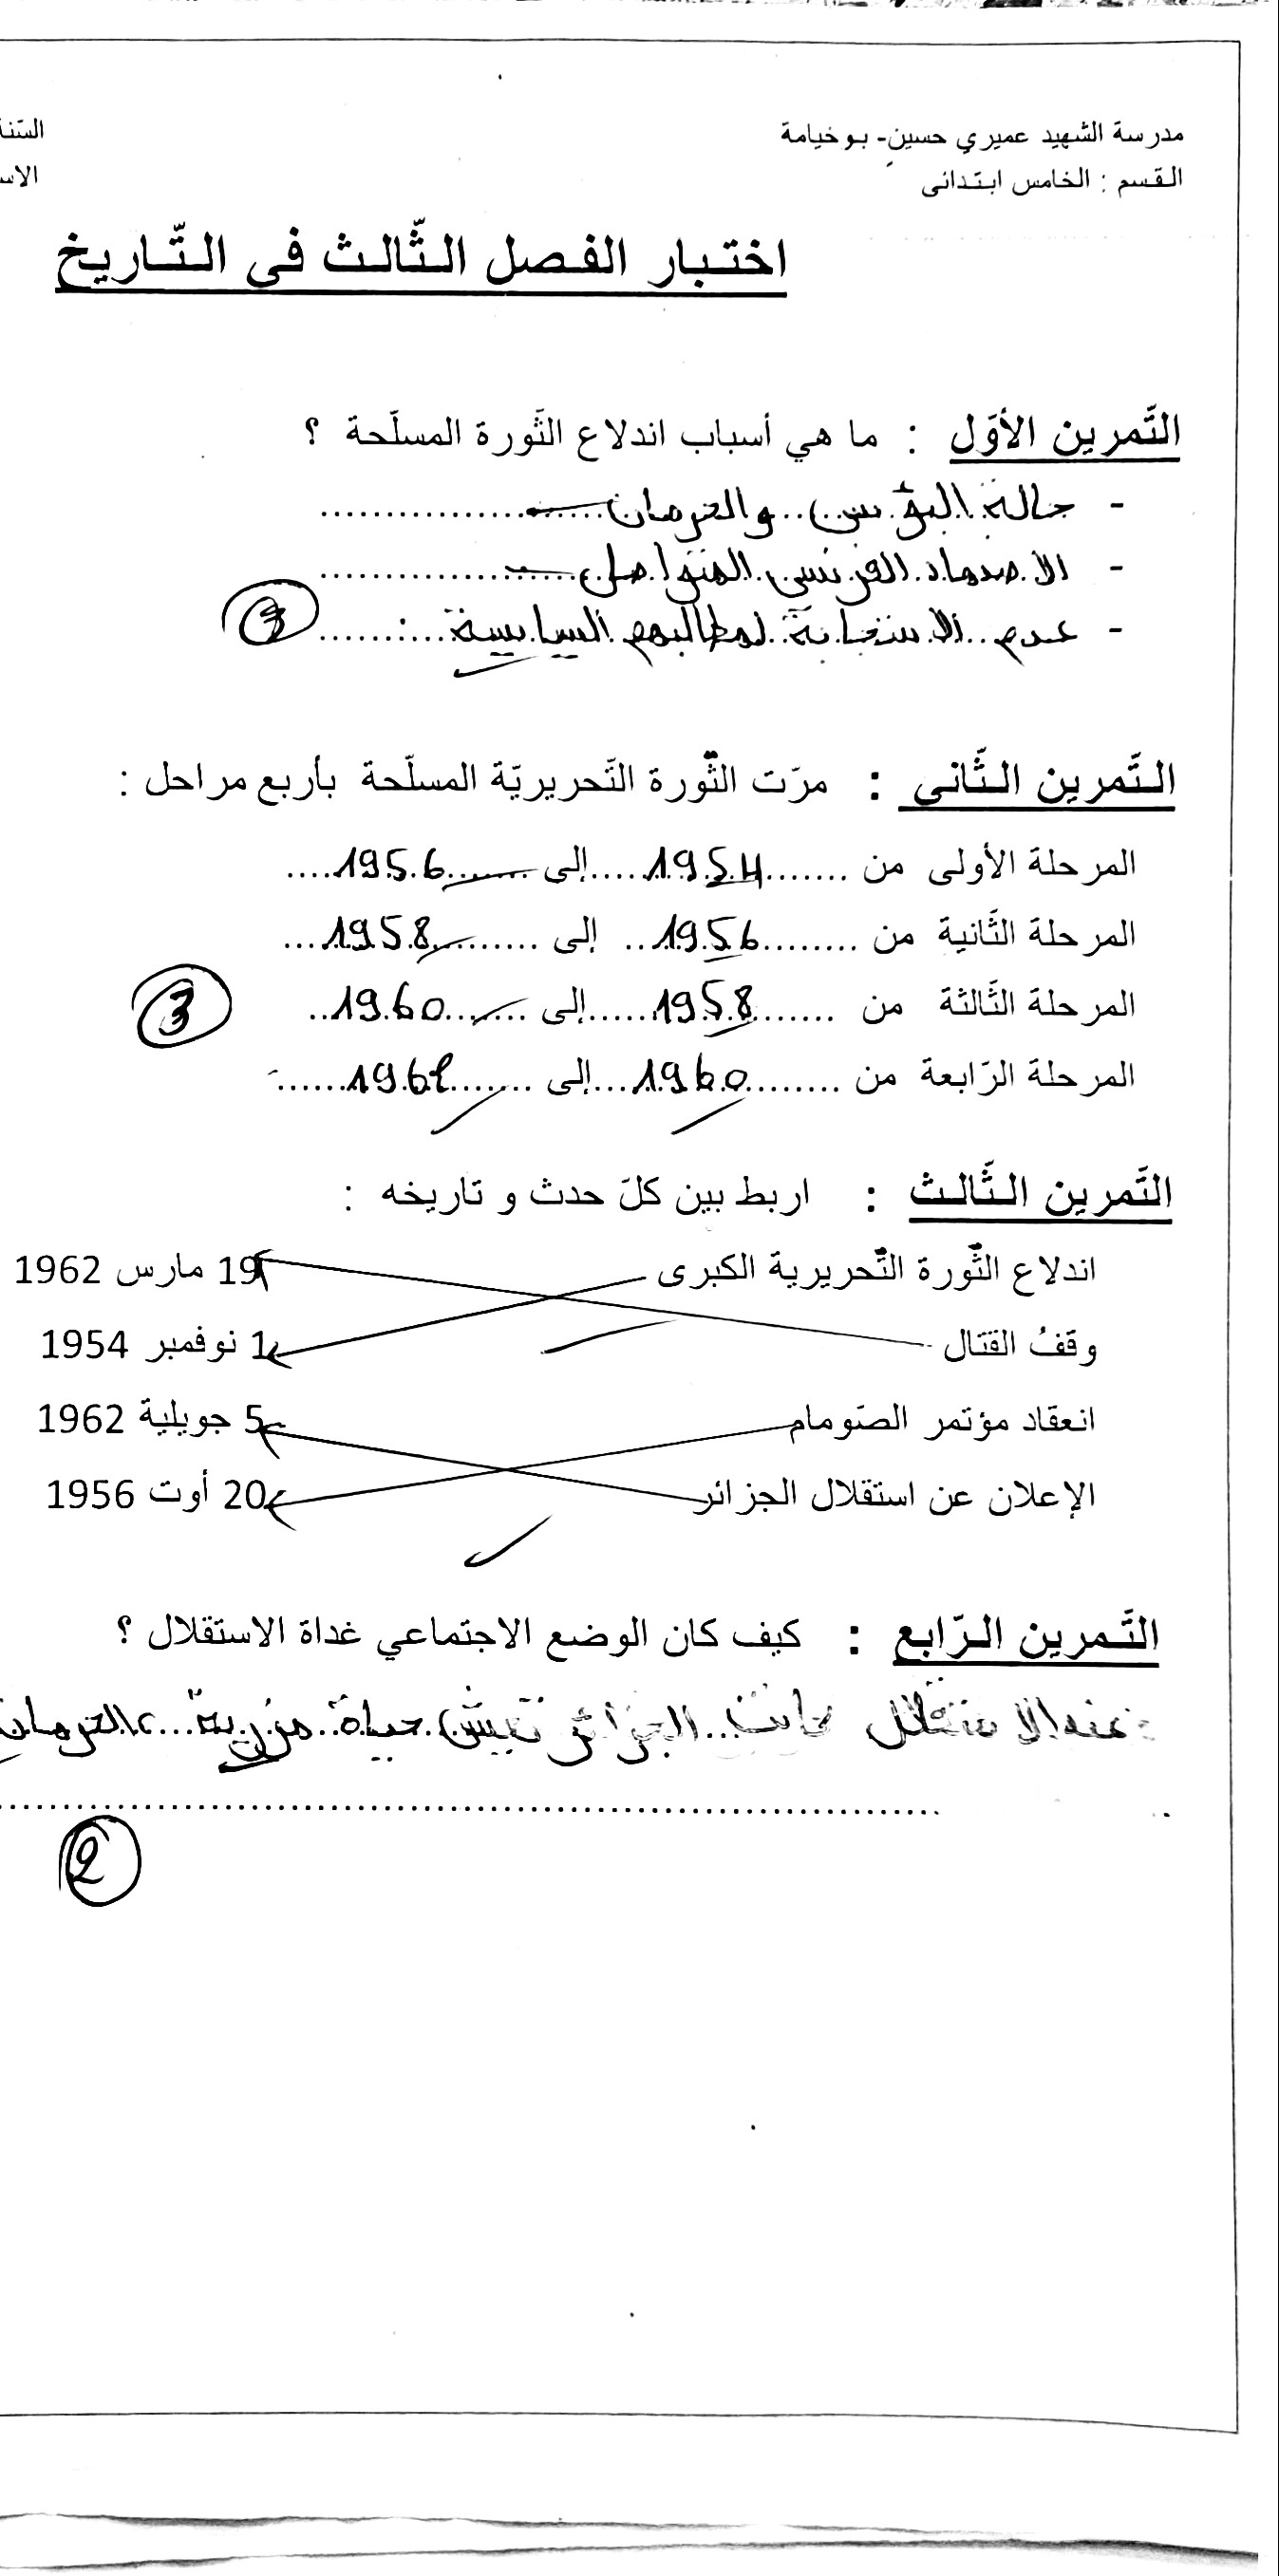 مدرسة الشهيد عميري حسين- بوخيامة
السّنة
القسم : الخامس ابتدائي
اختبار الفصل الثّالث في التّاريخ
التّمرين الأوّل : ما هي أسباب اندلاع الثّورة المسلّحة ؟
- حالة البؤس والحرمان
- الاضطهاد الفرنسي المتواصل
- عدم الاستجابة لمطالبهم السياسية
3
التّمرين الثّاني : مرّت الثّورة التّحريريّة المسلّحة بأربع مراحل :
المرحلة الأولى من 1954 إلى 1956
المرحلة الثّانية من 1956 إلى 1958
المرحلة الثّالثة من 1958 إلى 1960
3
المرحلة الرّابعة من 1960 إلى 1962
التّمرين الثّالث : اربط بين كلّ حدث و تاريخه :
اندلاع الثّورة التّحريرية الكبرى 19 مارس 1962
وقفُ القتال 1 نوفمبر 1954
انعقاد مؤتمر الصّومام 5 جويلية 1962
الإعلان عن استقلال الجزائر 20 أوت 1956
التّمرين الرّابع : كيف كان الوضع الاجتماعي غداة الاستقلال ؟
كانت الجزائر تعيش حياة مزرية
2